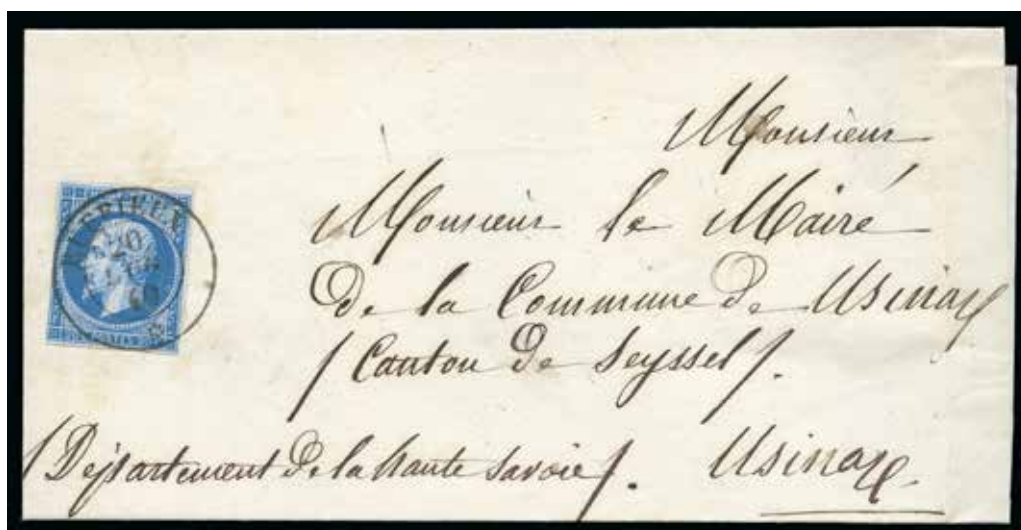 Monsieur
Monsieur le Mairé
De la Commune De Usinay
/ Canton De Seyssel /.
/ Département De la haute Savoie /. Usinay
20
60